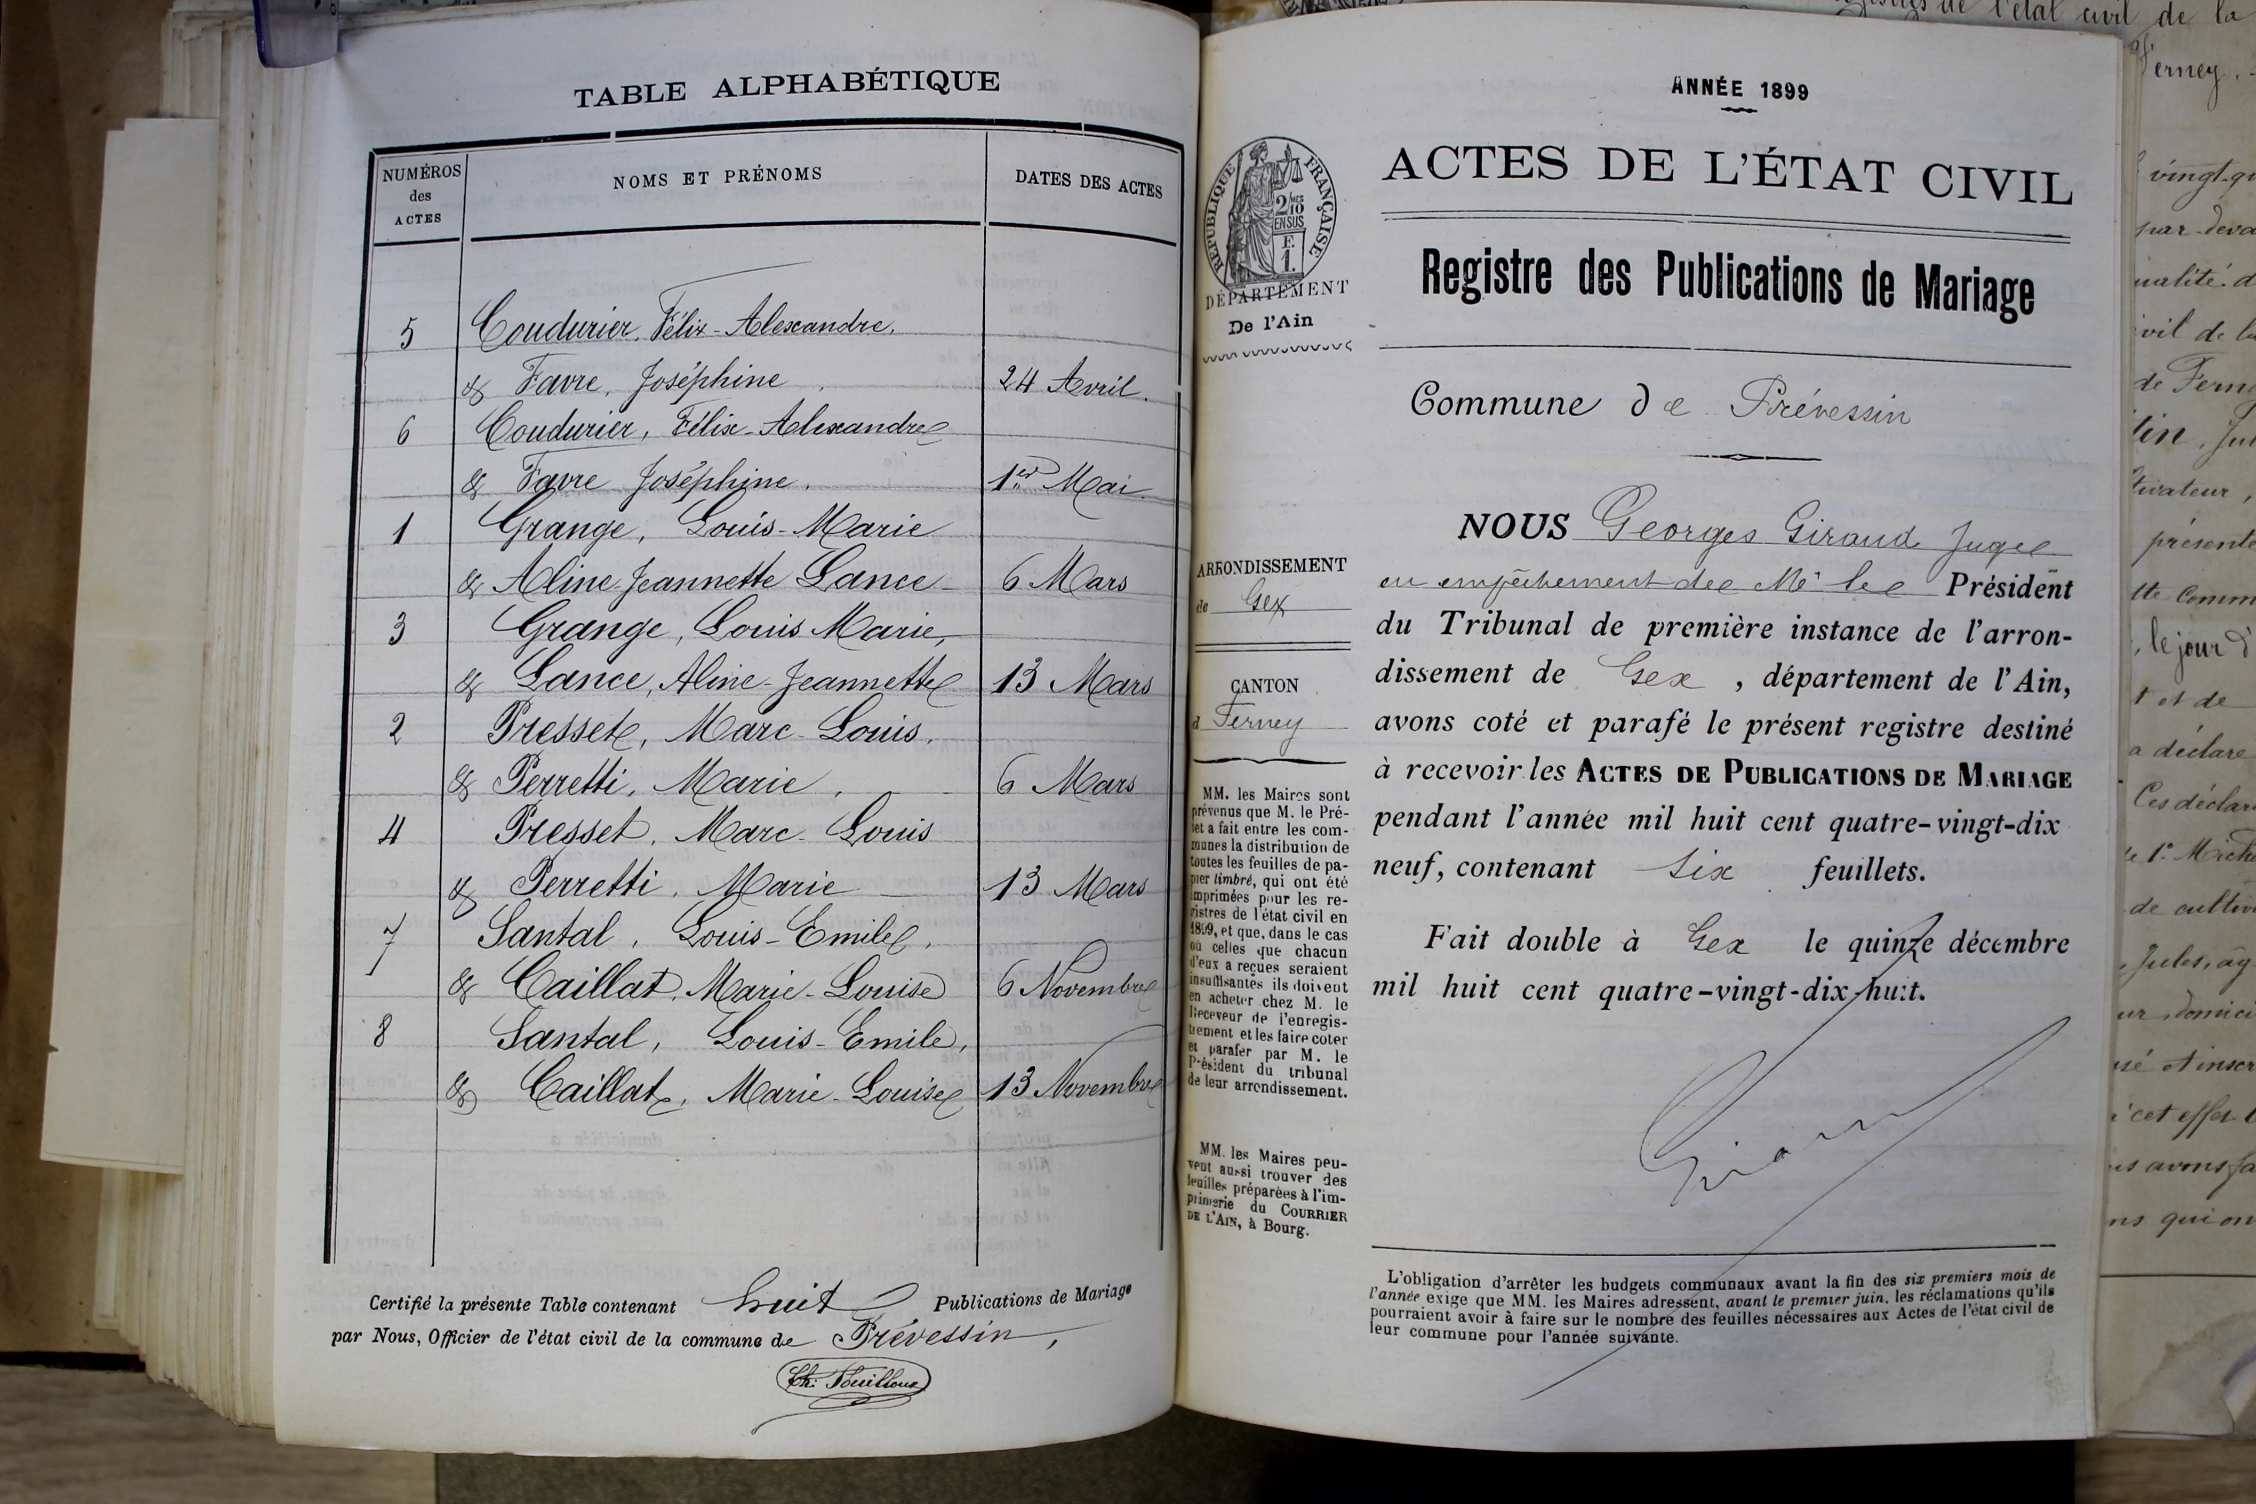 TABLE ALPHABÉTIQUE
NUMÉROS
des
ACTES
NOMS ET PRÉNOMS
DATES DES ACTES
5 Coudurier, Félix-Alexandre,
& Favre, Joséphine 24 Avril.
6 Coudurier, Félix-Alexandre
& Favre Joséphine. 1er Mai
1 Grange, Louis-Marie
& Aline Jeannette Lance 6 Mars
3 Grange, Louis Marie,
& Lance, Aline-Jeannette 13 Mars
2 Presset, Marc-Louis.
& Perretti, Marie 6 Mars
4 Presset, Marc-Louis
& Perretti, Marie 13 Mars
7 Santal, Louis-Emile,
& Caillat, Marie-Louise 6 Novembre
8 Santal, Louis-Emile,
& Caillat, Marie-Louise 13 Novembre
Certifié la présente Table contenant huit Publications de Mariage
par Nous, Officier de l'état civil de la commune de Prévessin,
ANNÉE 1899
RÉPUBLIQUE FRANÇAISE
2/10
EN SUS
F.
1.
DÉPARTEMENT
De l'Ain
ACTES DE L'ÉTAT CIVIL
Registre des Publications de Mariage
Commune de Prévessin
ARRONDISSEMENT
de Gex
CANTON
d Ferney
MM. les Maires sont
prévenus que M. le Pré-
fet a fait entre les com-
munes la distribution de
toutes les feuilles de pa-
pier timbré, qui ont été
imprimées pour les re-
gistres de l'état civil en
1899, et que, dans le cas
où celles que chacun
d'eux a reçues seraient
insuffisantes ils doivent
en acheter chez M. le
Receveur de l'enregis-
trement et les faire coter
et parafer par M. le
Président du tribunal
de leur arrondissement.
MM. les Maires peu-
vent aussi trouver des
feuilles préparées à l'im-
primerie du COURRIER
DE L'AIN, à Bourg.
NOUS Georges Giraud Juge
en empêchement de Mr le Président
du Tribunal de première instance de l'arron-
dissement de Gex, département de l'Ain,
avons coté et parafé le présent registre destiné
à recevoir les ACTES DE PUBLICATIONS DE MARIAGE
pendant l'année mil huit cent quatre-vingt-dix
neuf, contenant six feuillets.
Fait double à Gex le quinze décembre
mil huit cent quatre-vingt-dix-huit.
L'obligation d'arrêter les budgets communaux avant la fin des six premiers mois de
l'année exige que MM. les Maires adressent, avant le premier juin, les réclamations qu'ils
pourraient avoir à faire sur le nombre des feuilles nécessaires aux Actes de l'état civil de
leur commune pour l'année suivante.
de l'état civil de la
Ferney.
vingt-
par deva
vil de la
de Fern
présente
tte comm
le jour d
t et de
a déclare
Ces déclar
de cultiv
Jules, âg
ur, domici
cet effet
ns qui on